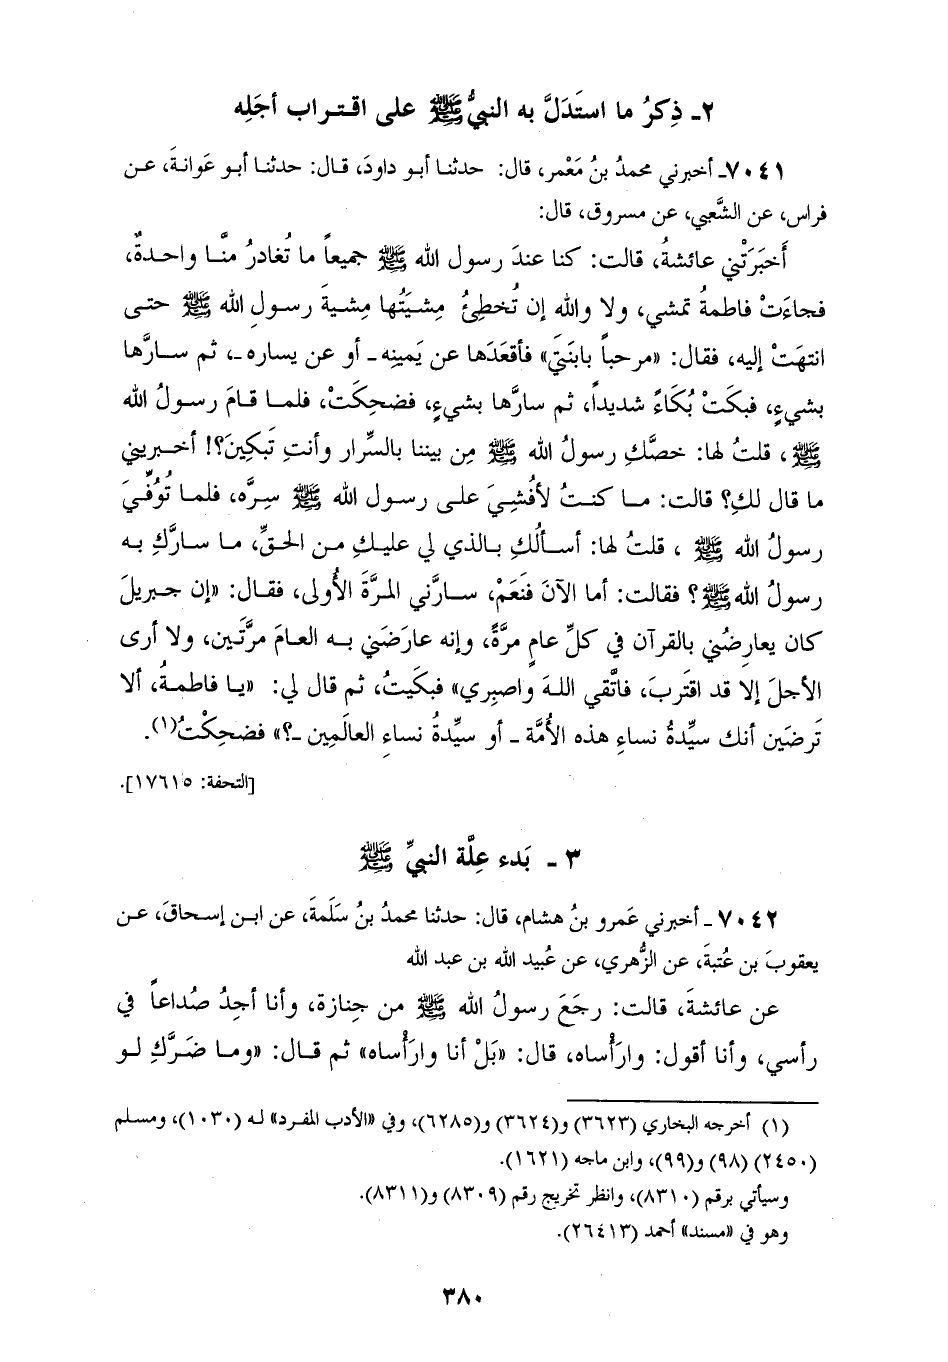 ٢ـ ذِكرُ ما استَدَلَّ به النبيُّ ﷺ على اقتراب أجَلِه
٧٠٤١ـ أخبرني محمدُ بنُ مَعْمر، قال: حدثنا أبو داودَ، قال: حدثنا أبو عَوانةَ، عن
فراس، عن الشَّعبي، عن مسروق، قال:
أَخبَرَتْني عائشةُ، قالت: كنا عندَ رسول الله ﷺ جميعاً ما تُغادرُ منَّا واحدةٌ،
فجاءَتْ فاطمةُ تمشي، ولا والله إن تُخطِئُ مِشيَتُها مِشيةَ رسولِ الله ﷺ حتى
انتهَتْ إليه، فقال: «مرحباً بابنَتي» فأقعَدَها عن يَمينِه ـ أو عن يساره ـ، ثم سارَّها
بشيءٍ، فبكَتْ بُكاءً شديداً، ثم سارَّها بشيءٍ، فضحِكَتْ، فلما قامَ رسولُ الله
ﷺ، قلتُ لها: خصَّكِ رسولُ الله ﷺ مِن بيننا بالسِّرار وأنتِ تَبكِينَ؟! أخبريني
ما قال لكِ؟ قالت: ما كنتُ لأُفشِيَ على رسول الله ﷺ سِرَّه، فلما تُوُفِّيَ
رسولُ الله ﷺ، قلتُ لها: أسألُكِ بالذي لي عليكِ من الحقِّ، ما سارَّكِ به
رسولُ الله ﷺ؟ فقالت: أما الآنَ فنَعَمْ، سارَّني المرَّةَ الأُولى، فقال: «إن جبريلَ
كان يعارِضُني بالقرآن في كلِّ عامٍ مرَّةً، وإنه عارَضَني به العامَ مرَّتَين، ولا أرى
الأجلَ إلا قد اقترَبَ، فاتَّقي اللهَ واصبِري» فبكَيتُ، ثم قال لي: «يا فاطمةُ، ألا
تَرضَين أنك سيِّدةُ نساءِ هذه الأُمَّة ـ أو سيِّدةُ نساءِ العالَمِين ـ؟» فضحِكْتُ(١).
[التحفة: ١٧٦١٥].
٣ ـ بَدء عِلَّة النبيِّ ﷺ
٧٠٤٢ـ أخبرني عَمرو بنُ هشام، قال: حدثنا محمدُ بنُ سَلَمةَ، عن ابن إسحاقَ، عن
يعقوبَ بن عُتبةَ، عن الزُّهري، عن عُبيد الله بن عبد الله
عن عائشةَ، قالت: رجَعَ رسولُ الله ﷺ من جِنازة، وأنا أجدُ صُداعاً في
رأسي، وأنا أقول: وارَأْساه، قال: «بَلْ أنا وارَأْساه» ثم قال: «وما ضَرَّكِ لو
(١) أخرجه البخاري (٣٦٢٣) و(٣٦٢٤) و(٦٢٨٥)، وفي «الأدب المفرد» له (١٠٣٠)، ومسلم
(٢٤٥٠) (٩٨) و(٩٩)، وابن ماجه (١٦٢١).
وسيأتي برقم (٨٣١٠)، وانظر تخريج رقم (٨٣٠٩) و(٨٣١١).
وهو في «مسند» أحمد (٢٦٤١٣).
٣٨٠